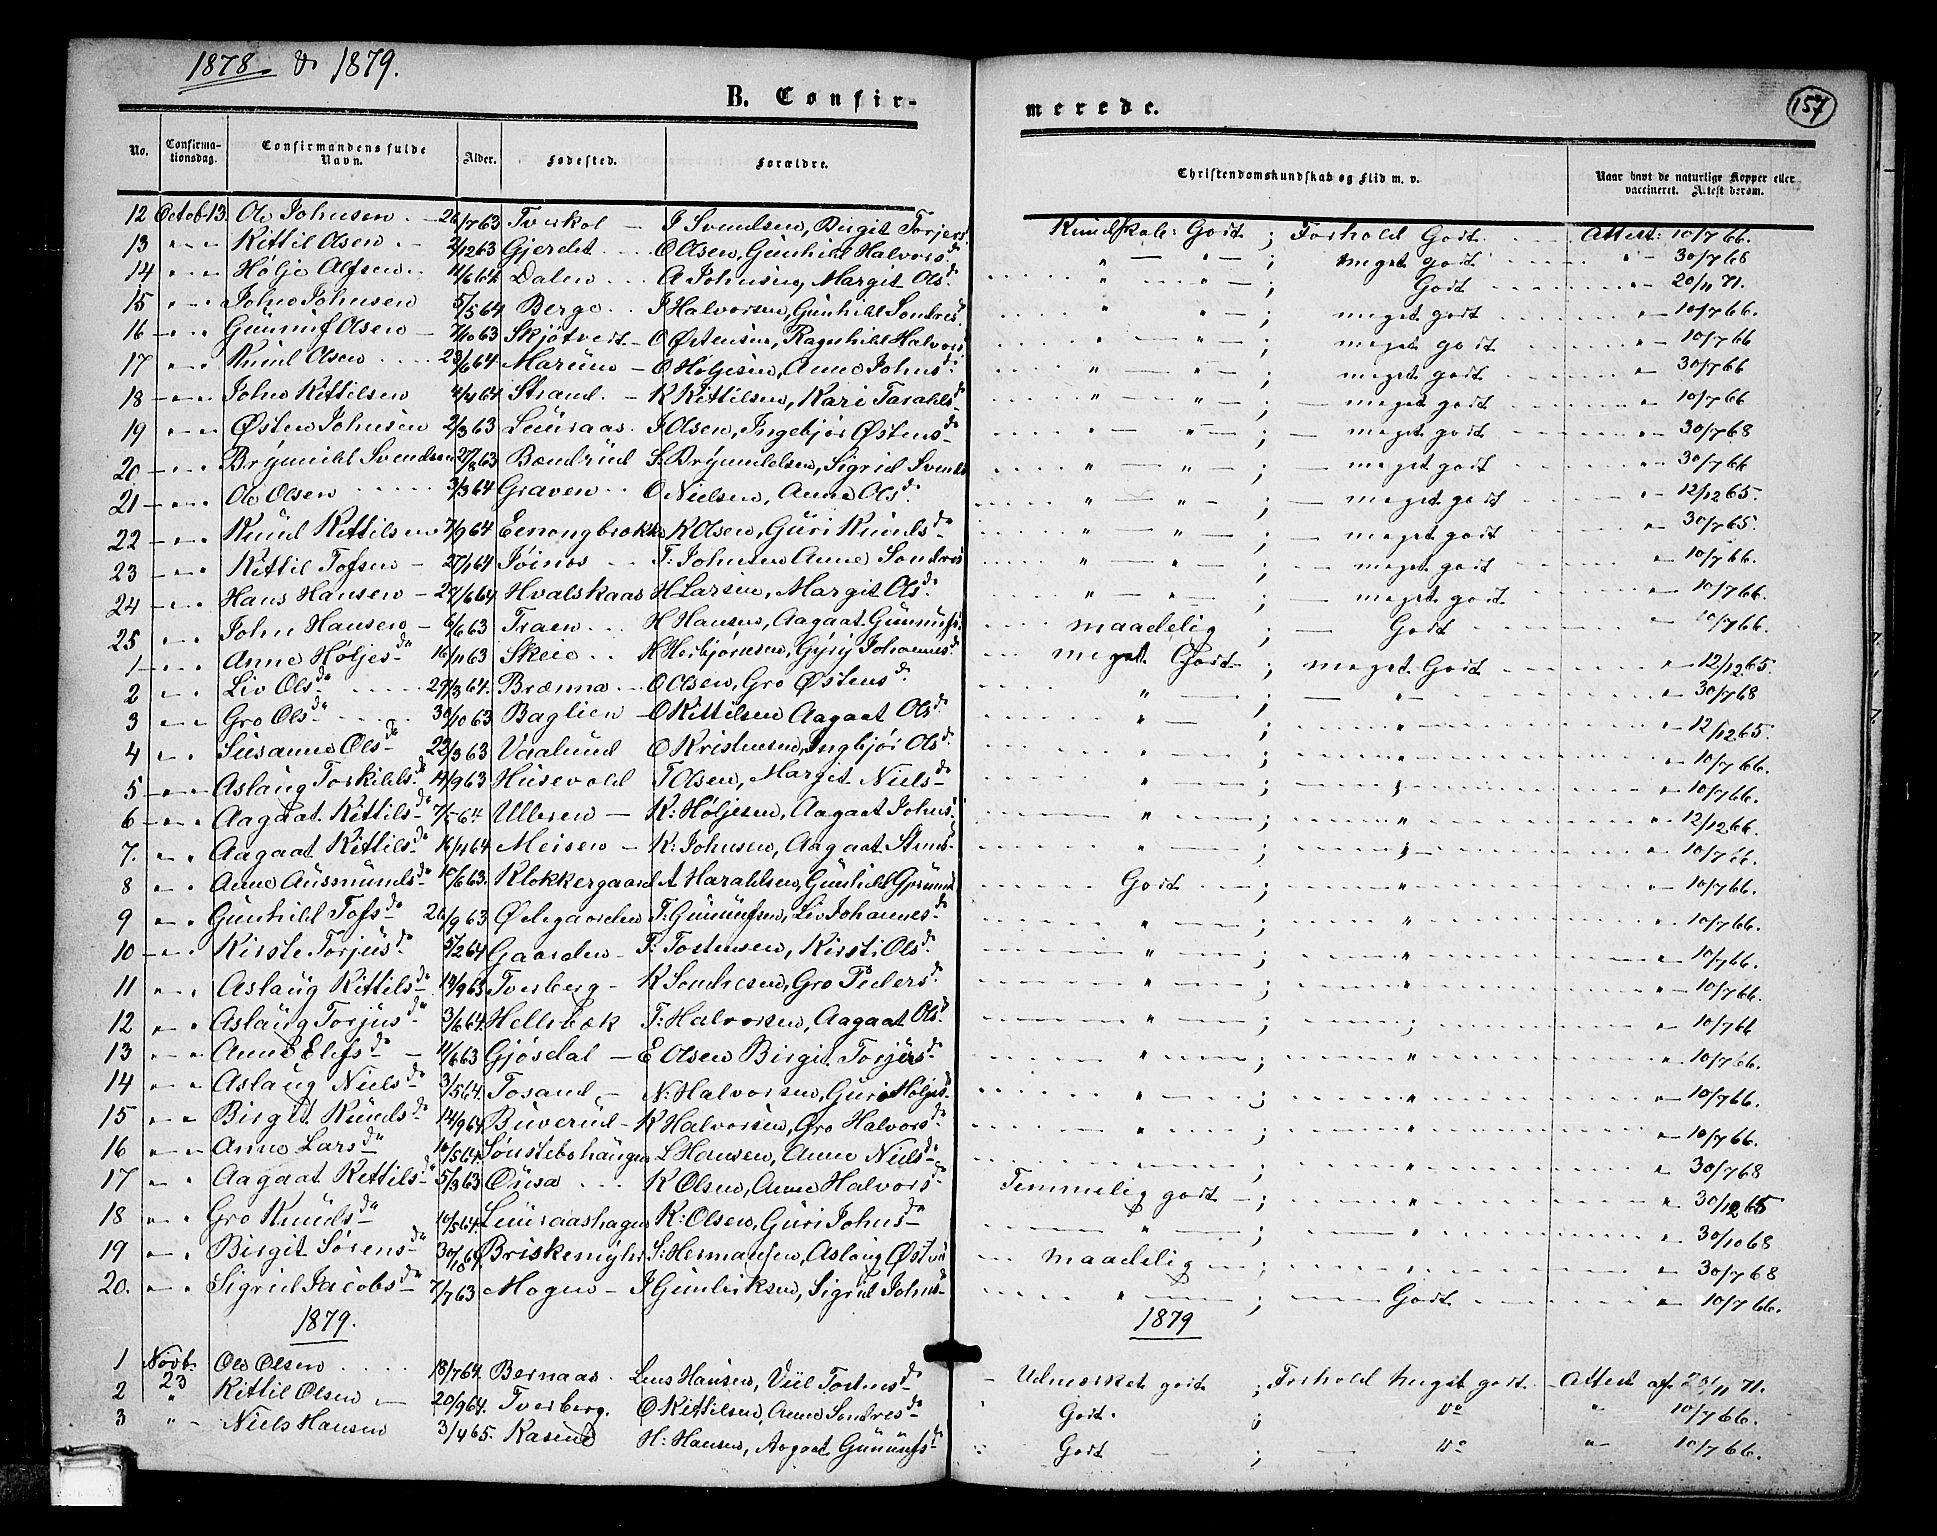 1878 & 1879.
B. Confirmerede.
157
No. Confirmationsdag. Confirmandens fulde Navn. Alder. Fødested. Forældre. Christendomskundskab og Flid m. v. Naar havt de naturlige Kopper eller vaccineret. Attest derom.
12 Octob 13. Ole Johnsen 26/7 63 Tveskol J Svendsen, Birgit Torjers Kundskab: Godt ; Forhold Godt Attest: 10/7 66.
13 " " Kittil Olsen 2/12 63 Gjerdet O Olsen, Gunhild Halvorsd. " " ; meget godt " 30/7 68
14 " " Hølje Alfsen 11/6 64 Dalen A Johnsen, Margit Olsd. " " ; Godt " 20/11 71.
15 " " John Johnsen 5/5 64 Berge J Halvorsen, Gunhild Sondresd. " " ; meget godt " 10/7 66.
16 " " Gunnuf Olsen 7/10 63 Skjøtvedt O Østensen, Ragnhild Halvors " " ; meget godt " 10/7 66
17 " " Knud Olsen 23/6 64 Marum O Høljesen, Anne Johnsd. " " ; meget godt " 30/7 66
18 " " John Kittilsen 4/4 64 Strand K Kittilsen, Kari Taraldsd. " " ; meget godt " 10/7 66
19 " " Østen Johnsen 2/3 63 Luuraas J Olsen, Ingebjør Østensd. " " ; meget godt " 30/7 68
20 " " Brynnild Svendsen 27/8 63 Bændrud S. Brynnildsen, Sigrid Svends " " ; meget godt " 30/7 66
21 " " Ole Olsen 3/3 64 Graven O Nielsen, Anne Olsd. " " ; meget godt " 12/12 65.
22 " " Knud Kittilsen 7/9 64 Eenongbrokke K Olsen, Guri Knudsd. " " ; meget godt " 30/7 65.
23 " " Kittil Tofsen 27/1 64 Jøinos T: Johnsen Anne Sondres " " ; meget godt " 10/7 66.
24 " " Hans Hansen 27/6 64 Hvalskaas H Larsen, Margit Olsd. " " ; meget godt " 10/7 66.
25 " " John Hansen 6/6 63 Traen H Hansen, Aagaat Gunnufs. maadelig ; Godt 10/7 66.
1 " " Anne Høljesda 16/11 63 Skeie H Herbjørnsen, Gyrij Johannesd. meget Godt ; meget Godt " 12/12 65.
2 " " Liv Olsda 27/3 64. Brænna O Olsen, Gro Østensd. " ; " " 30/7 68
3 " " Gro Olsda 30/10 63 Baglien O Kittilsen Aagaat Olsd. " ; " " 12/12 65.
4 " " Susanne Olsda 22/3 63 Vaalund O Kristensen, Ingbjør Olsd. " ; " " 10/7 66.
5 " " Aslaug Torkildsda 14/9 63 Husevold T Olsen, Marget Nielsd. " ; " " 10/7 66.
6 " " Aagaat Kittilsda 7/5 64 Ulleren K: Høljesen, Aagaat Johns. " ; " " 12/12 66.
7. " " Aagaat Kittilsda 16/11 64 Meisen K: Johnsen, Aagaat Stens " ; " " 10/7 66.
8 " " Anne Ausmundsda 10/6 63. Klokkergaard A Haraldsen, Gunhild Germund Godt " " 10/7 66.
9 " " Gunhild Tofsda 26/9 63 Ødegaarden T: Gunnufsen, Liv Johannesd. " " " 10/7 66.
10 " " Kirste Torjusda 5/2 64 Gaarden T: Tostensen, Kirsti Olsd. " " " 10/7 66.
11 " " Aslaug Kittilsda 13/9 63 Tverberg K Sondresen, Gro Pedersd. " ; " " 10/7 66.
12 " " Aslaug Torjusda 3/6 64. Hellebæk T: Halvorsen, Aagaat Olsd. " ; " 10/7 66
13 " " Anne Elefsda 11/6 63 Gjøsdal E Olsen Birgit Torjersd. " ; " " 10/7 66.
14 " " Aslaug Nielsda 3/5 64. Tosand N: Halvorsen, Guri Høljesd. " ; " " 10/7 66.
15 " " Birgit Knudsda 14/9 64 Buverud K Halvorsen, Gro Halvorsd. " ; " " 10/7 66.
16 " " Anne Larsda 10/5 64 Sønstebohaugen L Hansen, Anne Nielsd. " ; " " 30/7 68
17 " " Aagaat Kittilsda 5/3 63 Ousa K Olsen, Anne Halvorsd. Temmelig godt ; " " 30/12 65
18 " " Gro Knudsda 10/5 64 Luuraashagen K: Olsen, Guri Johnsda " ; " " 30/10 68
19 " " Birgit Sørensda 30/10 64. Briskemyhr S: Hermansen, Aslaug Østens maadelig ; " " 30/7 68
20. " " Sigrid Jacobsda 7/7 63 Mogen J Gunleiksen, Sigrid Johnsd. " ; Godt " 10/7 66.
1879. 1879
1 Novb. 23 Ole Olsen 18/7 64. Bernaas. Hansen, Tostensda Udmærket godt ; Forhold Meget godt Attest af 20/11 71.
2 " Kittil Olsen 20/9 64. Tverberg. O Kittilsen, Anne Sondresda Godt. ; do " 10/7 66.
3 " Niels Hansen 3/4 65. Kasend H: Hansen, Aagaat Gunnufsda Godt ; do " 10/7 66.